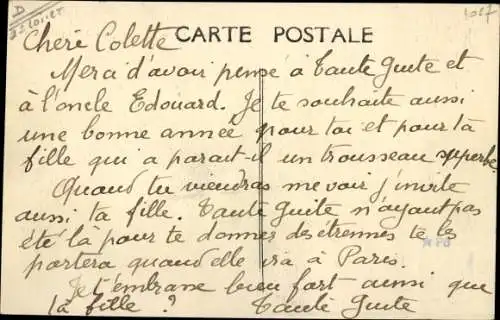 D
Loiret
1017
CARTE POSTALE
Cheré Colette
Merci d'avoir pensé à Tante Guite et
à l'oncle Edouard. Je te souhaite aussi
une bonne année pour toi et pour ta
fille qui a parait-il un trousseau superbe.
Quand tu viendras me voir j'invite
aussi ta fille. Tante Guite n'ayant pas
été là pour te donner des étrennes te les
portera quand elle ira à Paris.
Je t'embrasse bien fort aussi que
ta fille ? Tante Guite